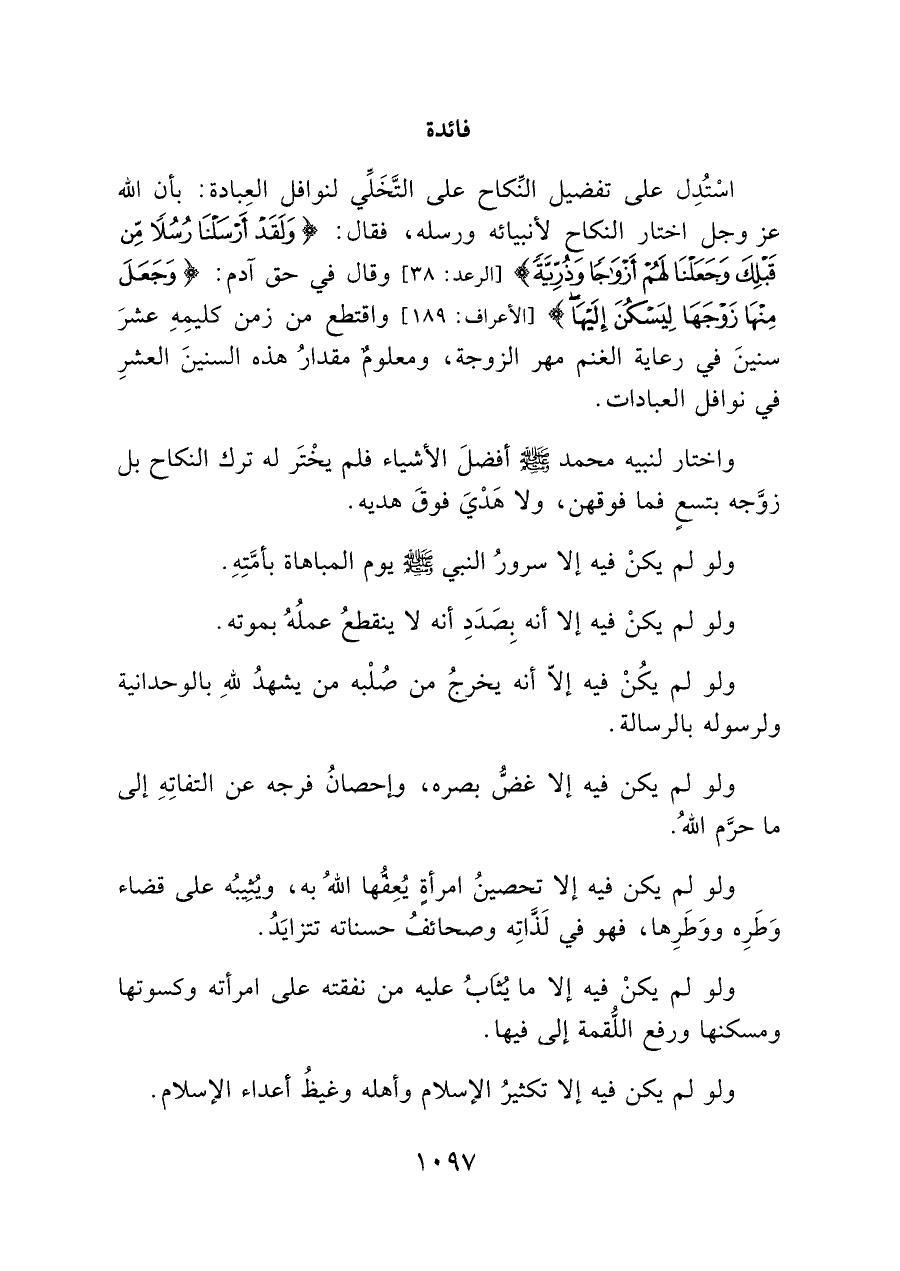 فائدة
اسْتُدِل على تفضيل النِّكاح على التَّخَلِّي لنوافل العِبادة: بأن الله
عز وجل اختار النكاح لأنبيائه ورسله، فقال: ﴿وَلَقَدْ أَرْسَلْنَا رُسُلًا مِّن
قَبْلِكَ وَجَعَلْنَا لَهُمْ أَزْوَٰجًا وَذُرِّيَّةً﴾ [الرعد: ٣٨] وقال في حق آدم: ﴿وَجَعَلَ
مِنْهَا زَوْجَهَا لِيَسْكُنَ إِلَيْهَا ۖ﴾ [الأعراف: ١٨٩] واقتطع من زمن كليمِهِ عشرَ
سنينَ في رعاية الغنم مهر الزوجة، ومعلومٌ مقدارُ هذه السنينَ العشرِ
في نوافل العبادات.
واختار لنبيه محمد ﷺ أفضلَ الأشياء فلم يخْتَر له ترك النكاح بل
زوَّجه بتسعٍ فما فوقهن، ولا هَدْيَ فوقَ هديه.
ولو لم يكنْ فيه إلا سرورُ النبي ﷺ يوم المباهاة بأمَّتِهِ.
ولو لم يكنْ فيه إلا أنه بِصَدَدِ أنه لا ينقطعُ عملُهُ بموته.
ولو لم يكُنْ فيه إلاّ أنه يخرجُ من صُلْبه من يشهدُ للهِ بالوحدانية
ولرسوله بالرسالة.
ولو لم يكن فيه إلا غضُّ بصره، وإحصانُ فرجه عن التفاتِهِ إلى
ما حرَّم اللهُ.
ولو لم يكن فيه إلا تحصينُ امرأةٍ يُعِفُّها اللهُ به، ويُثِيبُه على قضاء
وَطَرِه ووَطَرِها، فهو في لَذَّاتِه وصحائفُ حسناته تتزايَدُ.
ولو لم يكنْ فيه إلا ما يُثَابُ عليه من نفقته على امرأته وكسوتها
ومسكنها ورفع اللُّقمة إلى فيها.
ولو لم يكن فيه إلا تكثيرُ الإسلام وأهله وغيظُ أعداء الإسلام.
١٠٩٧